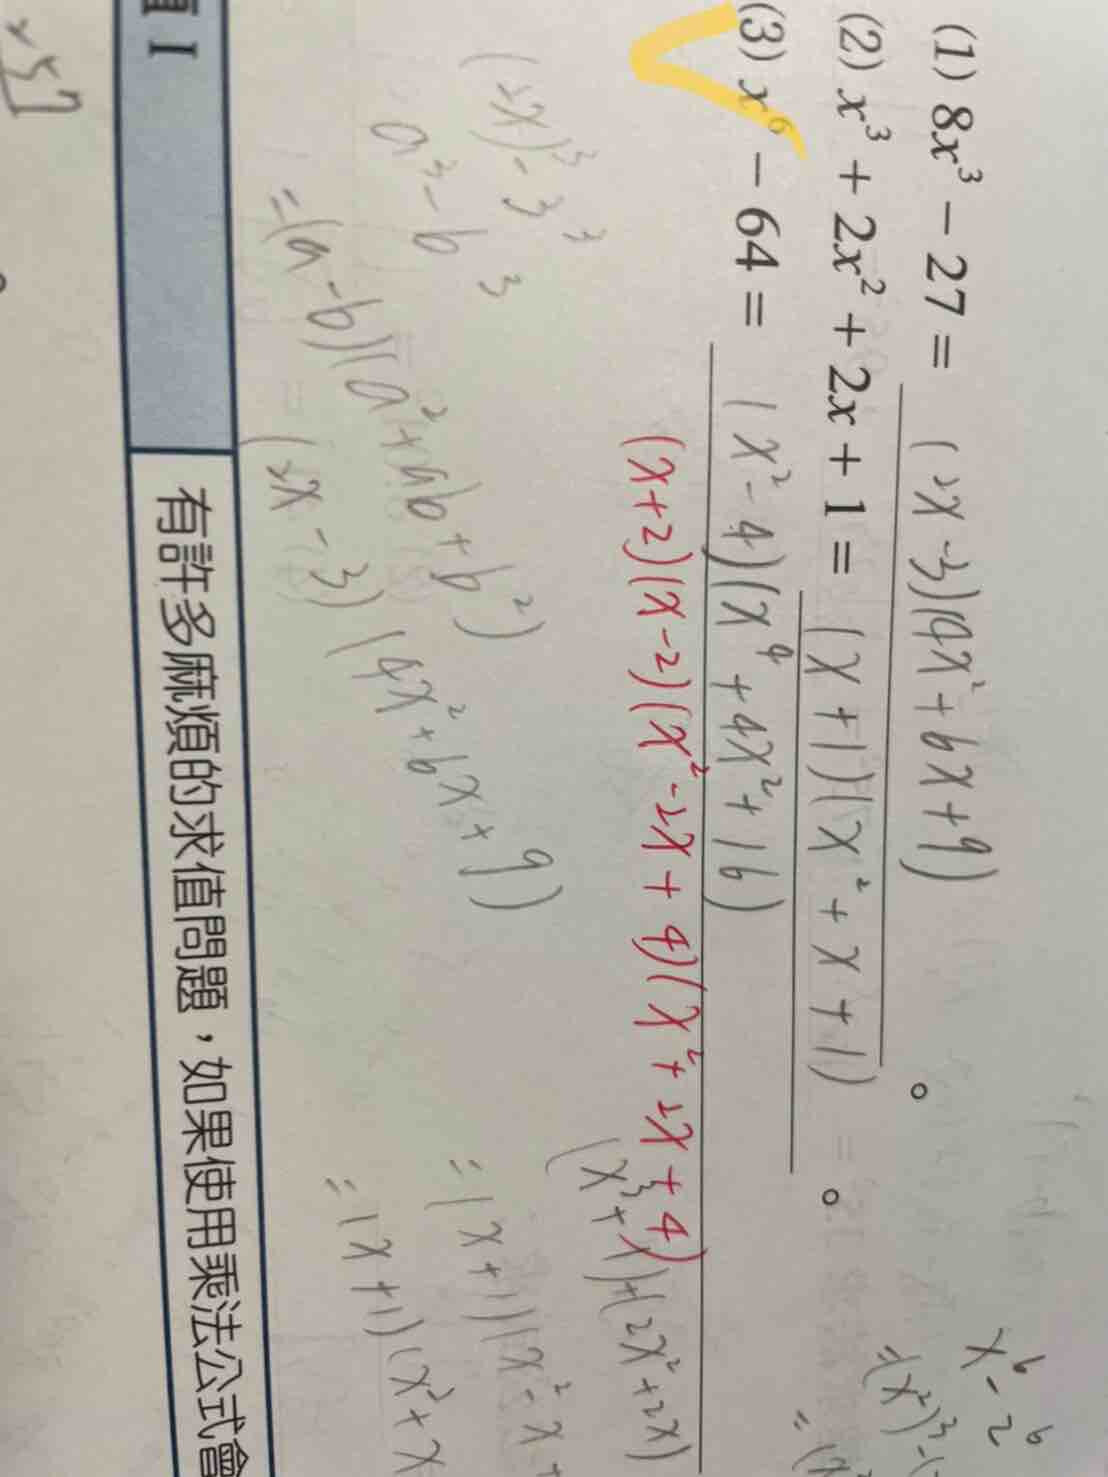 (1) 8x³ − 27 = (2x-3)(4x²+6x+9) 。
(2) x³ + 2x² + 2x + 1 = (x+1)(x²+x+1) 。
(3) x⁶ − 64 = (x²-4)(x⁴+4x²+16)
(x+2)(x-2)(x²-2x+4)(x²+2x+4)
x⁶-2⁶
=(x²)³-(
(2x)³-3³
a³-b³
=(a-b)(a²+ab+b²)
(2x-3)(4x²+6x+9)
(x³+1)+(2x²+2x)
=(x+1)(x²-x+
=(x+1)(x²+x
I
有許多麻煩的求值問題，如果使用乘法公式會